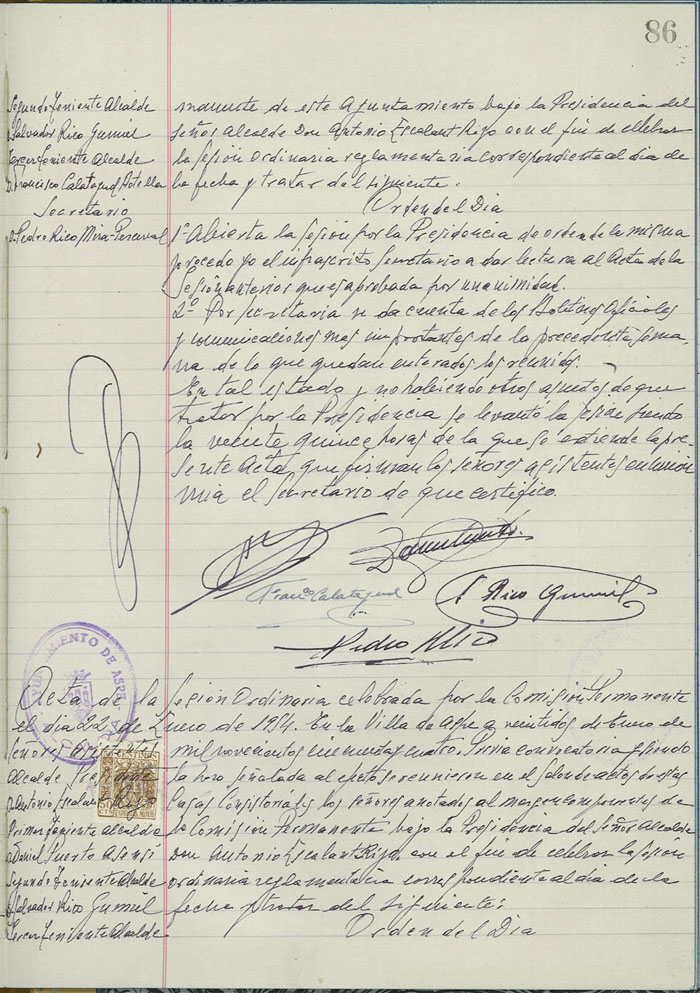 86
Segundo Teniente Alcalde
D. Salvador Rico Gumiel
Tercer Teniente Alcalde
D. Francisco Calatayud Botella
Secretario
D. Pedro Rico Mira-Perceval
manente de este Ayuntamiento bajo la Presidencia del
Señor Alcalde Don Antonio Escalant Rizo con el fin de celebrar
la sesión Ordinaria reglamentaria correspondiente al dia de
la fecha y tratar del siguiente.
Orden del Dia
1º Abierta la sesión por la Presidencia de orden de la misma
procedo yo el infrascrito Secretario a dar lectura al Acta de la
sesión anterior que es aprobada por unanimidad.
2º Por secretaria se da cuenta de los Boletines Oficiales
y comunicaciones mas importantes de la precedente sema
na de lo que quedan enterados los reunidos.
En tal estado y no habiendo otros asuntos de que
tratar por la Presidencia se levanto la sesión siendo
la veinte quince horas de la que se extiende la pre-
sente Acta que firman los señores asistentes en
mia el Secretario de que certifico.
Franco Calatayud
S Rico Gumiel
Pedro Rico
AYUNTAMIENTO DE ASPE
Acta de la Sesión Ordinaria celebrada por la Comisión Permanente
el dia 22 de Enero de 1954. En la Villa de Aspe a veintidos de Enero de
Señores Asistentes
Alcalde
D. Antonio Escalant Rizo
Primer Teniente Alcalde
D. Daniel Puerto Asensi
Segundo Teniente Alcalde
D. Salvador Rico Gumiel
Tercer Teniente Alcalde
mil novecientos cincuenta y cuatro. Previa convocatoria y siendo
la hora señalada al efecto se reunieron en el Salon de actos de estas
Casas Consistoriales los señores anotados al margen componentes de
la Comisión Permanente bajo la Presidencia del Señor Alcalde
Don Antonio Escalant Rizo, con el fin de celebrar la sesión
ordinaria reglamentaria correspondiente al dia de la
fecha y tratar del siguiente:
Orden del Dia